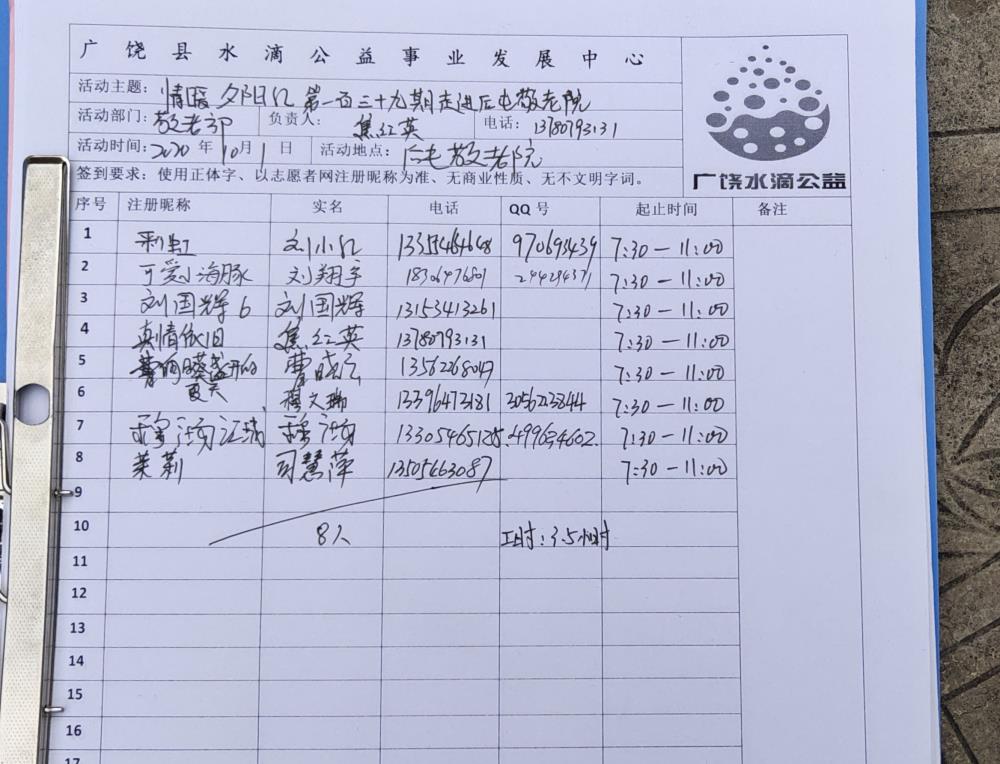 广饶县水滴公益事业发展中心
活动主题：情暖夕阳红 第一百三十九期走进后屯敬老院
活动部门：敬老部 负责人：焦红英 电话：13780793131
活动时间：2020年10月1日 活动地点：后屯敬老院
签到要求：使用正体字、以志愿者网注册昵称为准、无商业性质、无不文明字词。
广饶水滴公益
序号 注册昵称 实名 电话 QQ号 起止时间 备注
1 彩虹 刘小红 970693439 7:30—11:00
2 可爱小海豚 刘翔宇 7:30—11:00
3 刘国辉6 刘国辉 13153413261 7:30—11:00
4 真情依旧 焦红英 13780793131 7:30—11:00
5 曹晓云 13562268049 7:30—11:00
6 夏天 13396473181 7:30—11:00
7 13305465125 499634602 7:30—11:00
8 茉莉 司慧萍 13505463087 7:30—11:00
9
10 8人 工时：3.5小时
11
12
13
14
15
16
17